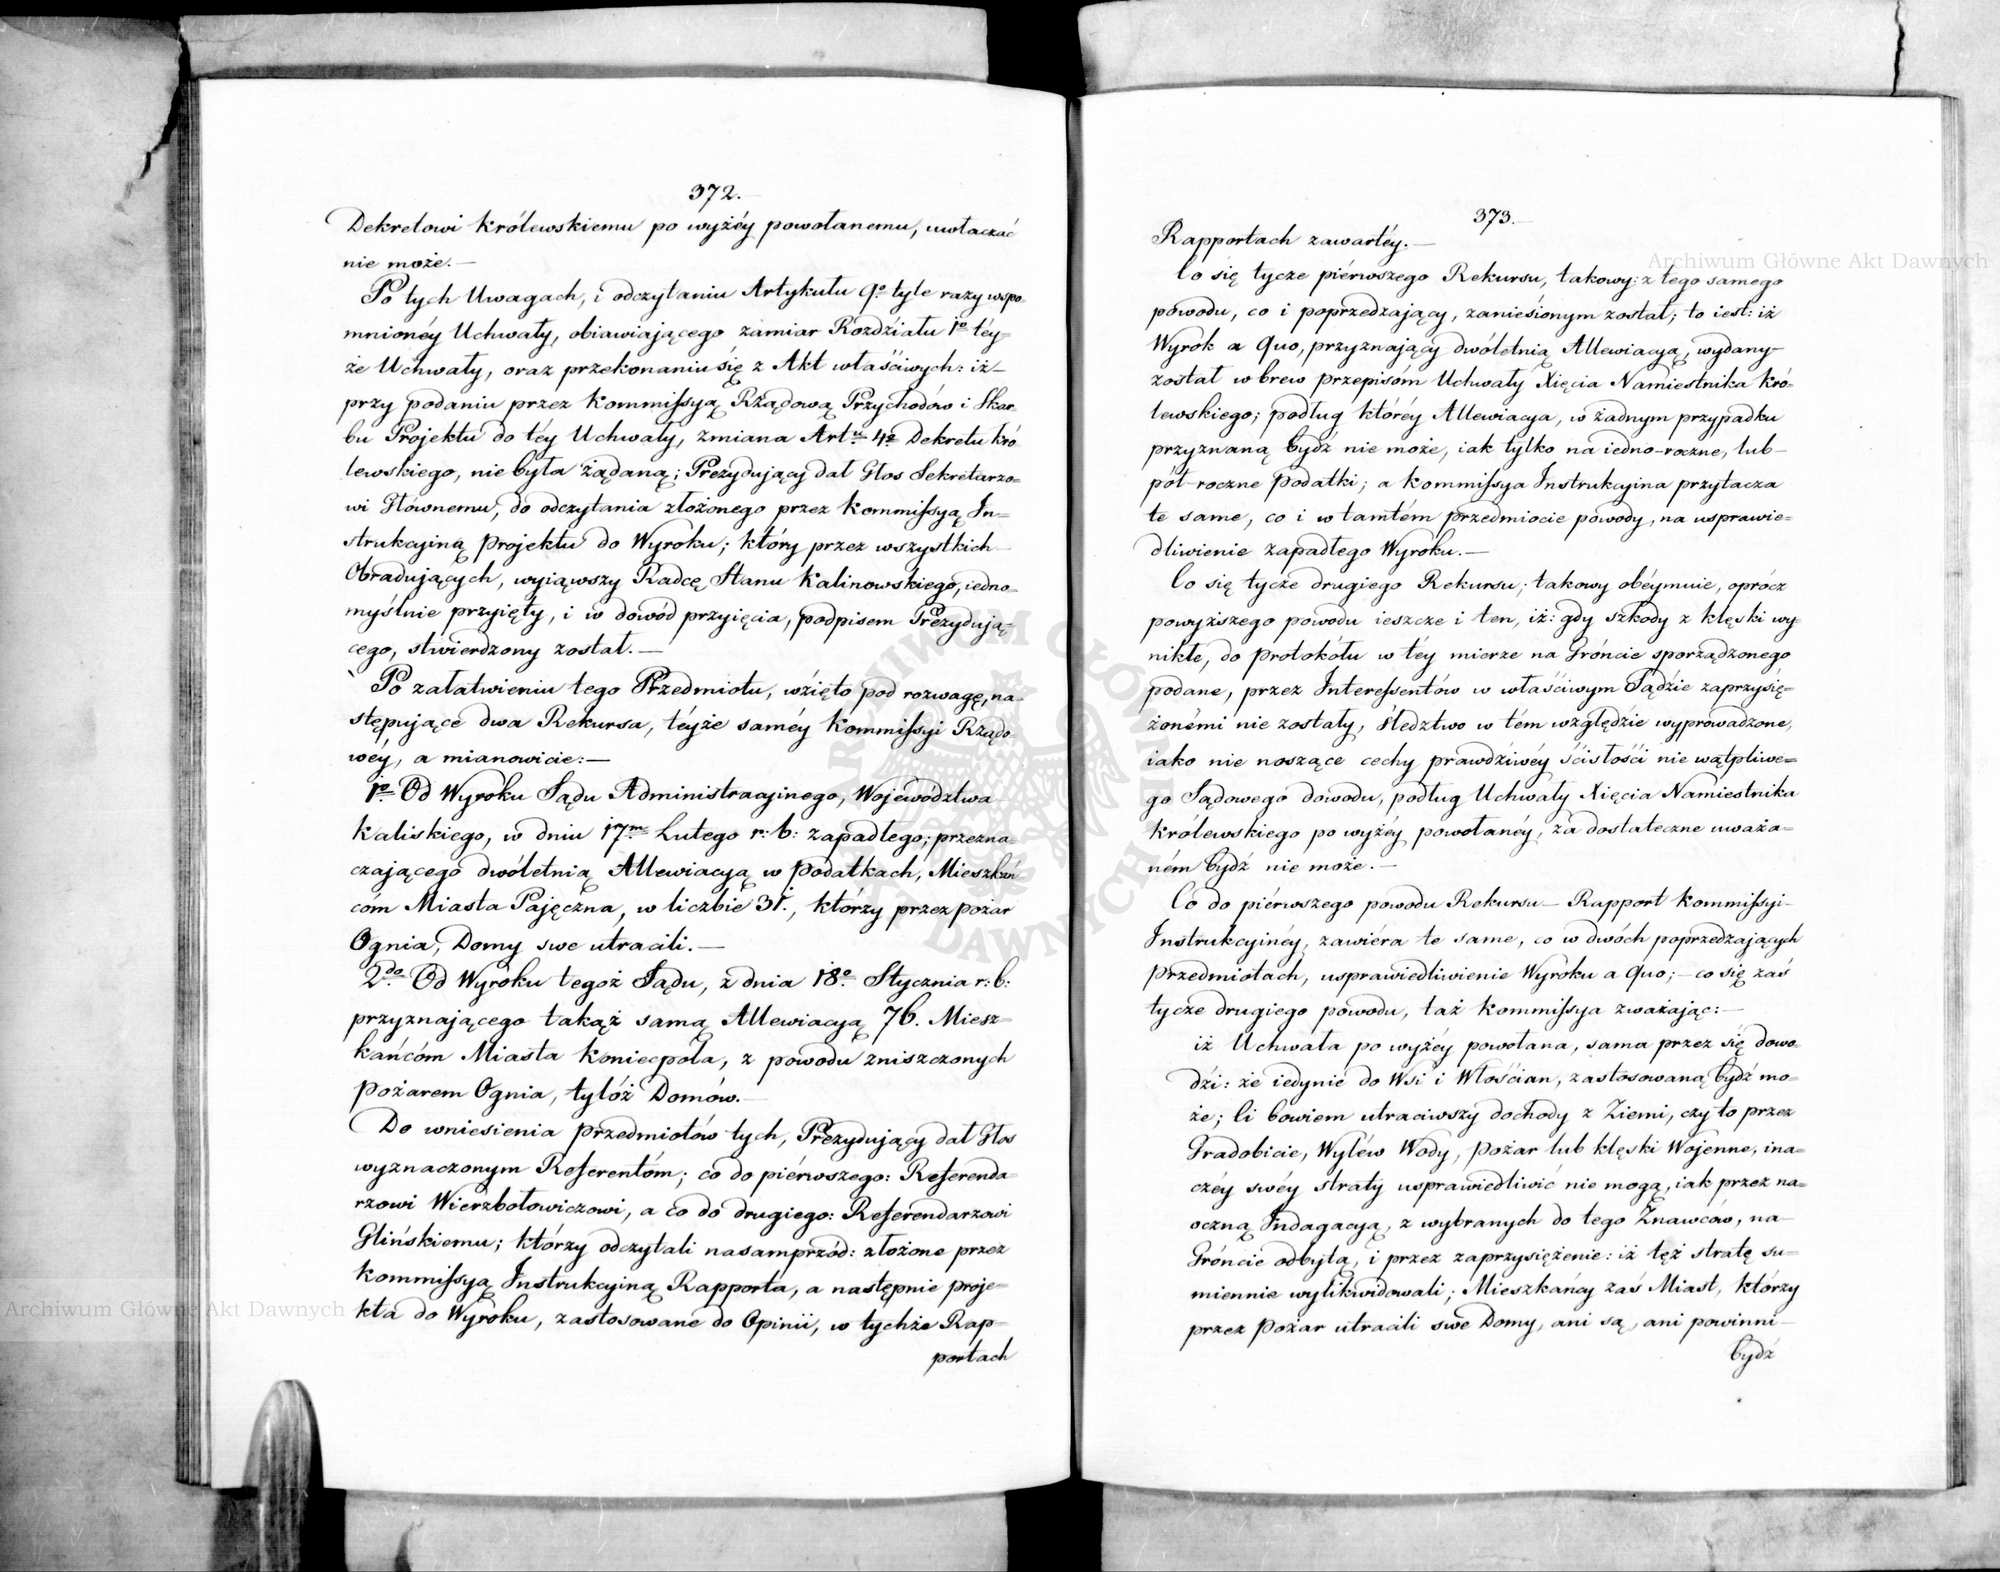 372.
Dekretowi Królewskiemu po wyżéy powołanemu, uwłaczać
nie może.—
Po tych Uwagach, i odczytaniu Artykułu 9º tyle razy wspo-
mnionéy Uchwały, obiawiaiącego zamiar Rozdźiału 1º téy=
że Uchwały, oraz przekonaniu się z Akt właśćiwych: iż—
przy podaniu przez Kommissyą Rządową Przychodów i Skar-
bu Projektu do téy Uchwały, zmiana Artu 4º Dekretu Kró
lewskiego, nie była żądaną; Prezyduiący dał Głos Sekretarzo=
wi Głównemu, do odczytania złożonego przez Kommissyą In=
strukcyiną Projektu do Wyroku; który przez wszystkich—
Obraduiących, wyiąwszy Radcę Stanu Kalinowskiego, iedno-
myślnie przyięty, i w dowód przyięcia, podpisem Prezyduią-
cego, stwierdzony został.—
Po załatwieniu tego Przedmiotu, wzięto pod rozwagę, na-
stępuiące dwa Rekursa, téyże saméy Kommissyi Rządo
wéy, a mianowicie:—
1º Od Wyroku Sądu Administracyinego, Województwa
Kaliskiego, w dniu 17m Lutego r: b: zapadłego; przezna
czaiącego dwóletnią Allewiacyą w Podatkach, Mieszkań-
cóm Miasta Pajęczna, w liczbie 31., którzy przez pożar
Ognia, Domy swe utracili.—
2do Od Wyroku tegoż Sądu, z dnia 18º Stycznia r: b:
przyznaiącego takąż samą Allewiacyą 76. Miesz=
kańcóm Miasta Koniecpola, z powodu zniszczonych
Pożarem Ognia, tylóż Domów.—
Do wniesienia przedmiotów tych, Prezyduiący dał Głos
wyznaczonym Referentóm; co do piérwszego: Referenda-
rzowi Wierzbołowiczowi, a co do drugiego: Referendarzowi
Glińskiemu; którzy odczytali nasamprzód: złożone przez
Kommissyą Instrukcyiną Rapporta, a następnie proje=
kta do Wyroku, zastosowane do Opinii, w tychże Rap=
portach
373.—
Rapportach zawartéy.—
Co się tycze piérwszego Rekursu, takowy: z tego samego
powodu, co i poprzedzaiący, zaniesionym został; to iest: iż
Wyrok a Quo, przyznaiący dwóletnią Allewiacyą, wydany—
został wbrew przepisóm Uchwały Xięcia Namiestnika Kró=
lewskiego; podług któréy Allewiacya, w żadnym przypadku
przyznaną bydź nie może, iak tylko na iedno-roczne, lub—
pół-roczne Podatki; a Kommissya Instrukcyina przytacza
te same, co i w tamtém przedmiocie powody, na usprawie=
dliwienie zapadłego Wyroku.—
Co się tycze drugiego Rekursu; takowy obéymuie, oprócz
powyższego powodu ieszcze i ten, iż: gdy szkody z klęski wy=
nikłe, do Protokółu w téy mierze na Gróncie sporządzonego
podane, przez Interessentów w właśćiwym Sądzie zaprzysię=
żonémi nie zostały, śledztwo w tém względzie wyprowadzone,
iako nie noszące cechy prawdźiwéy śćisłośći nie wątpliwe=
go Sądowego dowodu, podług Uchwały Xięcia Namiestnika
Królewskiego po wyżéy powołanéy, za dostateczne uważa=
ném bydź nie może.—
Co do piérwszego powodu Rekursu— Rapport Kommissyi—
Instrukcyinéy, zawiéra te same, co w dwóch poprzedzaiących
Przedmiotach, usprawiedliwienie Wyroku a Quo;— co się zaś
tycze drugiego powodu, taż Kommissya zważaiąc:—
iż Uchwała po wyżéy powołana, sama przez się dowo-
dźi: że iedynie do Wsi i Włośćian, zastosowaną bydź mo-
że; Ci bowiem utraciwszy dochody z Ziemi, czy to przez
Gradobicie, Wyléw Wody, Pożar lub klęski Wojenne, ina=
czéy swéy straty usprawiedliwić nie mogą, iak przez na=
oczną Indagacyą, z wybranych do tego Znawców, na—
Gróncie odbytą, i przez zaprzysiężenie: iż téż stratę su=
miennie wylikwidowali; Mieszkańcy zaś Miast, którzy
przez Pożar utracili swe Domy, ani są, ani powinni—
bydź
Archiwum Główne Akt Dawnych
Archiwum Główne Akt Dawnych
ARCHIWUM GŁÓWNE AKT DAWNYCH